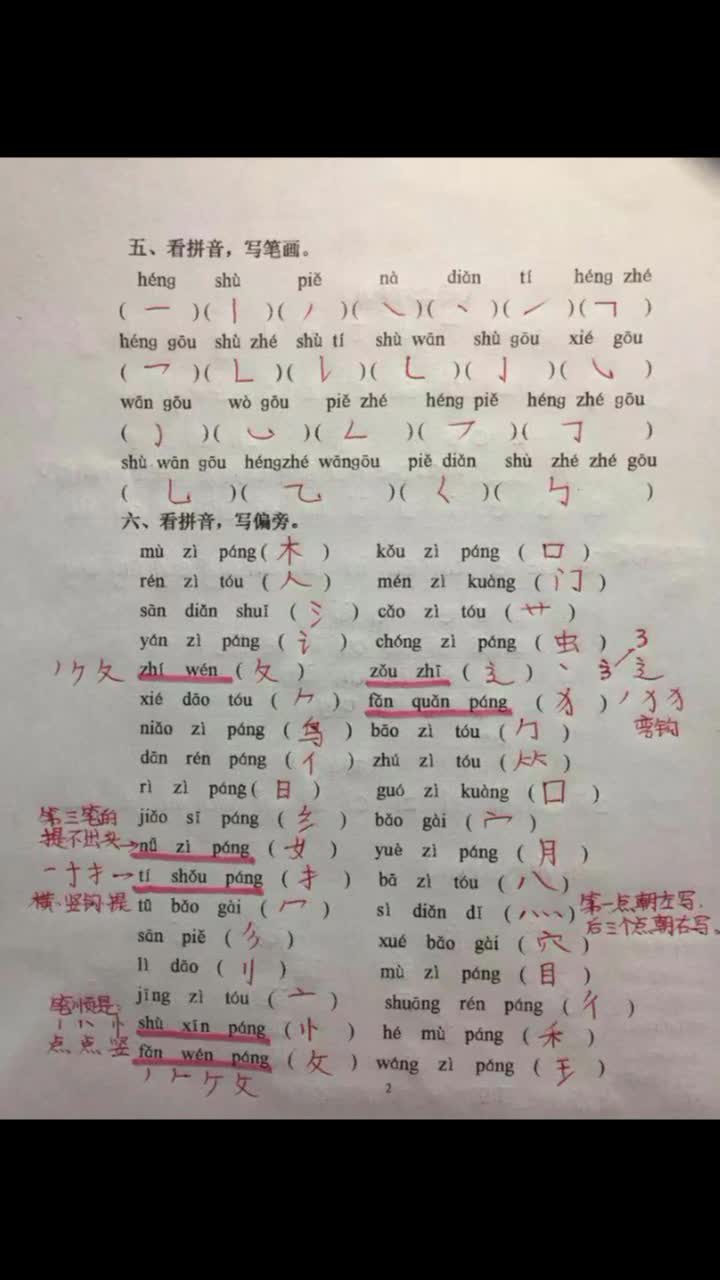 五、看拼音，写笔画。
héng shù piě nà diǎn tí héng zhé
( ㇐ )( ㇑ )( ㇒ )( ㇏ )( ㇔ )( ㇀ )( ㇕ )
héng gōu shù zhé shù tí shù wān shù gōu xié gōu
( ㇖ )( ㇗ )( ㇙ )( ㇄ )( ㇚ )( ㇂ )
wān gōu wò gōu piě zhé héng piě héng zhé gōu
( ㇁ )( ㇃ )( ㇜ )( ㇇ )( ㇆ )
shù wān gōu héngzhé wāngōu piě diǎn shù zhé zhé gōu
( ㇟ )( ㇈ )( ㇛ )( ㇉ )
六、看拼音，写偏旁。
mù zì páng ( 木 ) kǒu zì páng ( 口 )
rén zì tóu ( 人 ) mén zì kuàng ( 门 )
sān diǎn shuǐ ( 氵 ) cǎo zì tóu ( 艹 )
yán zì páng ( 讠 ) chóng zì páng ( 虫 ) 3
丿 夂 zhí wén ( 夂 ) zǒu zhī ( 辶 ) 丶 辶
xié dāo tóu ( ⺈ ) fǎn quǎn páng ( 犭 ) 丿 犭
弯钩
niǎo zì páng ( 鸟 ) bāo zì tóu ( 勹 )
dān rén páng ( 亻 ) zhú zì tóu ( ⺮ )
rì zì páng ( 日 ) guó zì kuàng ( 囗 )
第三笔的 jiǎo sī páng ( 纟 ) bǎo gài ( 宀 )
提不出头→ nǚ zì páng ( 女 ) yuè zì páng ( 月 )
一 扌→ tí shǒu páng ( 扌 ) bā zì tóu ( 八 )
横、竖钩、提 tū bǎo gài ( 冖 ) sì diǎn dǐ ( 灬 ) 第一点朝左写，
后三个点朝右写。
sān piě ( 彡 ) xué bǎo gài ( 穴 )
lì dāo ( 刂 ) mù zì páng ( 目 )
jīng zì tóu ( 亠 ) shuāng rén páng ( 彳 )
笔顺是：
点 点 竖 shù xīn páng ( 忄 ) hé mù páng ( 禾 )
fǎn wén páng ( 攵 ) wáng zì páng ( 王 )
丿 𠂉 攵
2